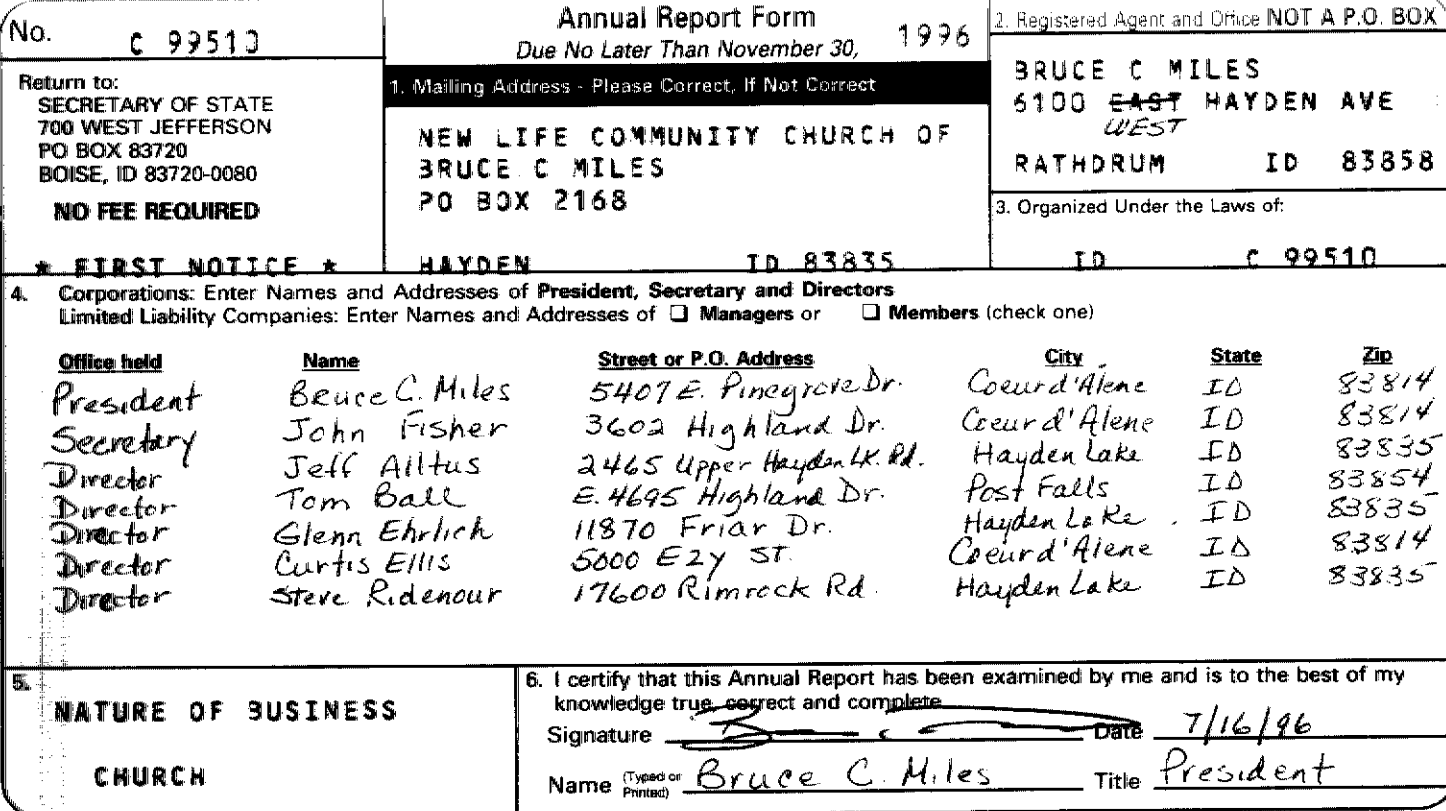 No. C 99510
Annual Report Form
Due No Later Than November 30, 1996
2. Registered Agent and Office NOT A P.O. BOX
Return to:
SECRETARY OF STATE
700 WEST JEFFERSON
PO BOX 83720
BOISE, ID 83720-0080
NO FEE REQUIRED
* FIRST NOTICE *
1. Mailing Address - Please Correct, If Not Correct
NEW LIFE COMMUNITY CHURCH OF
BRUCE C MILES
PO BOX 2168
HAYDEN ID 83835
BRUCE C MILES
6100 EAST HAYDEN AVE
WEST
RATHDRUM ID 83858
3. Organized Under the Laws of:
ID C 99510
4. Corporations: Enter Names and Addresses of President, Secretary and Directors
Limited Liability Companies: Enter Names and Addresses of ❑ Managers or ❑ Members (check one)
Office held Name Street or P.O. Address City State Zip
President Bruce C. Miles 5407 E. Pinegrove Dr. Coeur d'Alene ID 83814
Secretary John Fisher 3602 Highland Dr. Coeur d'Alene ID 83814
Director Jeff Ailtus 2465 Upper Hayden Lk. Rd. Hayden Lake ID 83835
Director Tom Ball E. 4695 Highland Dr. Post Falls ID 83854
Director Glenn Ehrlich 11870 Friar Dr. Hayden Lake ID 83835
Director Curtis Ellis 5000 EZY ST. Coeur d'Alene ID 83814
Director Steve Ridenour 17600 Rimrock Rd. Hayden Lake ID 83835
5.
NATURE OF BUSINESS
CHURCH
6. I certify that this Annual Report has been examined by me and is to the best of my
knowledge true, correct and complete
Signature Date 7/16/96
Name (Typed or Printed) Bruce C. Miles Title President